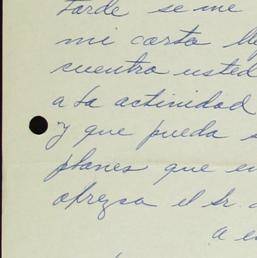 tarde se me
mi carta lle
cuentra usted
a la actividad
y que pueda s
planes que en
ofrezca el Sr.
a e